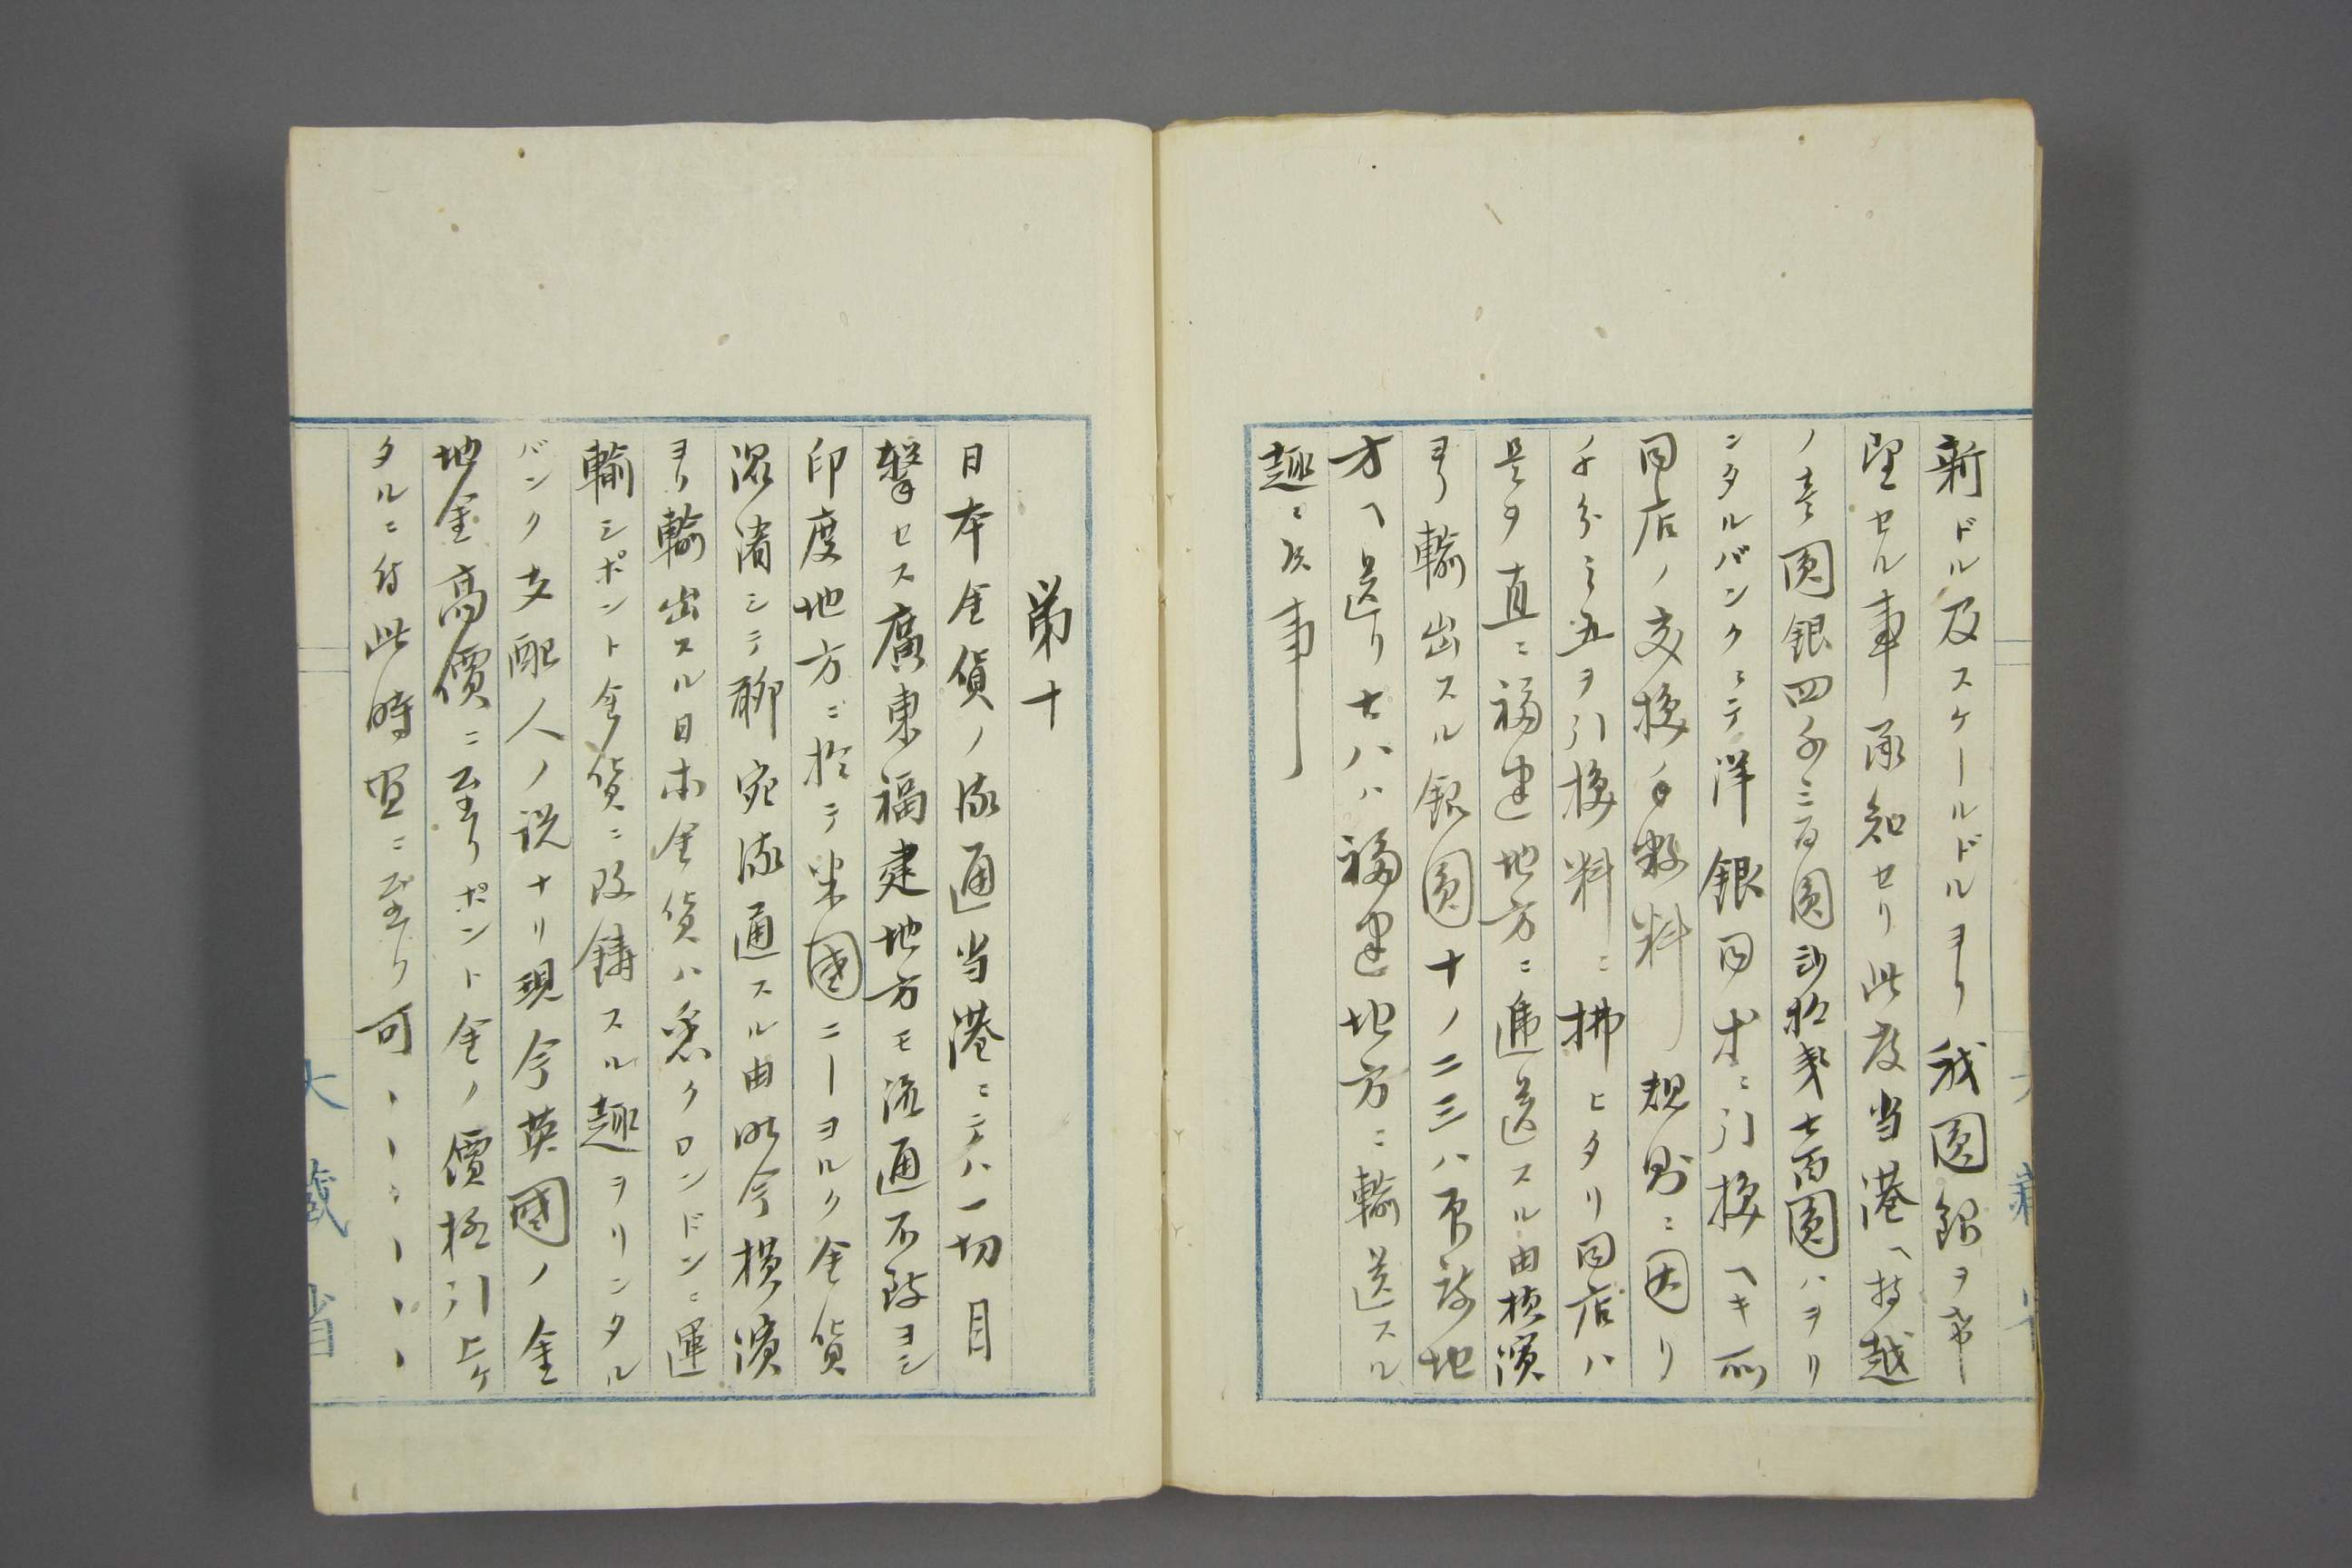 新ドル及スケールドルヨリ我圓銀ヲ希
望セル事承知セリ此度当港ヘ持越
ノ壱圓銀四千三百圓弐拾銭七百圓ハヲリ
ンタルバンクニテ洋銀同才ニ引換ヘキ所
同店ノ交換手数料規則ニ因リ
千分之五ヲ引換料ニ拂ヒタリ同店ハ
是ヲ直ニ福建地方ニ逓送スル由横濱
ヨリ輸出スル銀圓十ノ二三ハ當地
方ヘ送リ七八ハ福建地方ニ輸送スル
趣ニ候事
第十
日本金貨ノ流通当港ニテハ一切目
撃セス廣東福建地方モ流通不致ヨシ
印度地方ニ於テ米國ニーヨルク金貨
混淆シテ聊宛流通スル由昨今横濱
ヨリ輸出スル日本金貨ハ悉クロンドンニ運
輸シポント金貨ニ改鋳スル趣ヲリンタル
バンク支配人ノ説ナリ現今英國ノ金
地金高價ニ至リポント金ノ價格引上ケ
タルニ付此時宜ニ至リ可
大蔵省